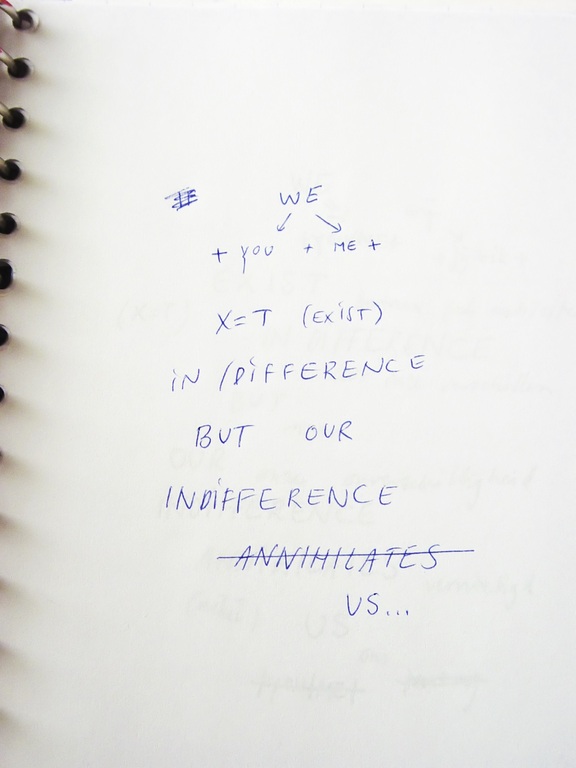 WE
+ YOU + ME +
X=T (EXiST)
iN /DiFFERENCE
BUT OUR
INDiFFERENCE
ANNIHILATES
US...